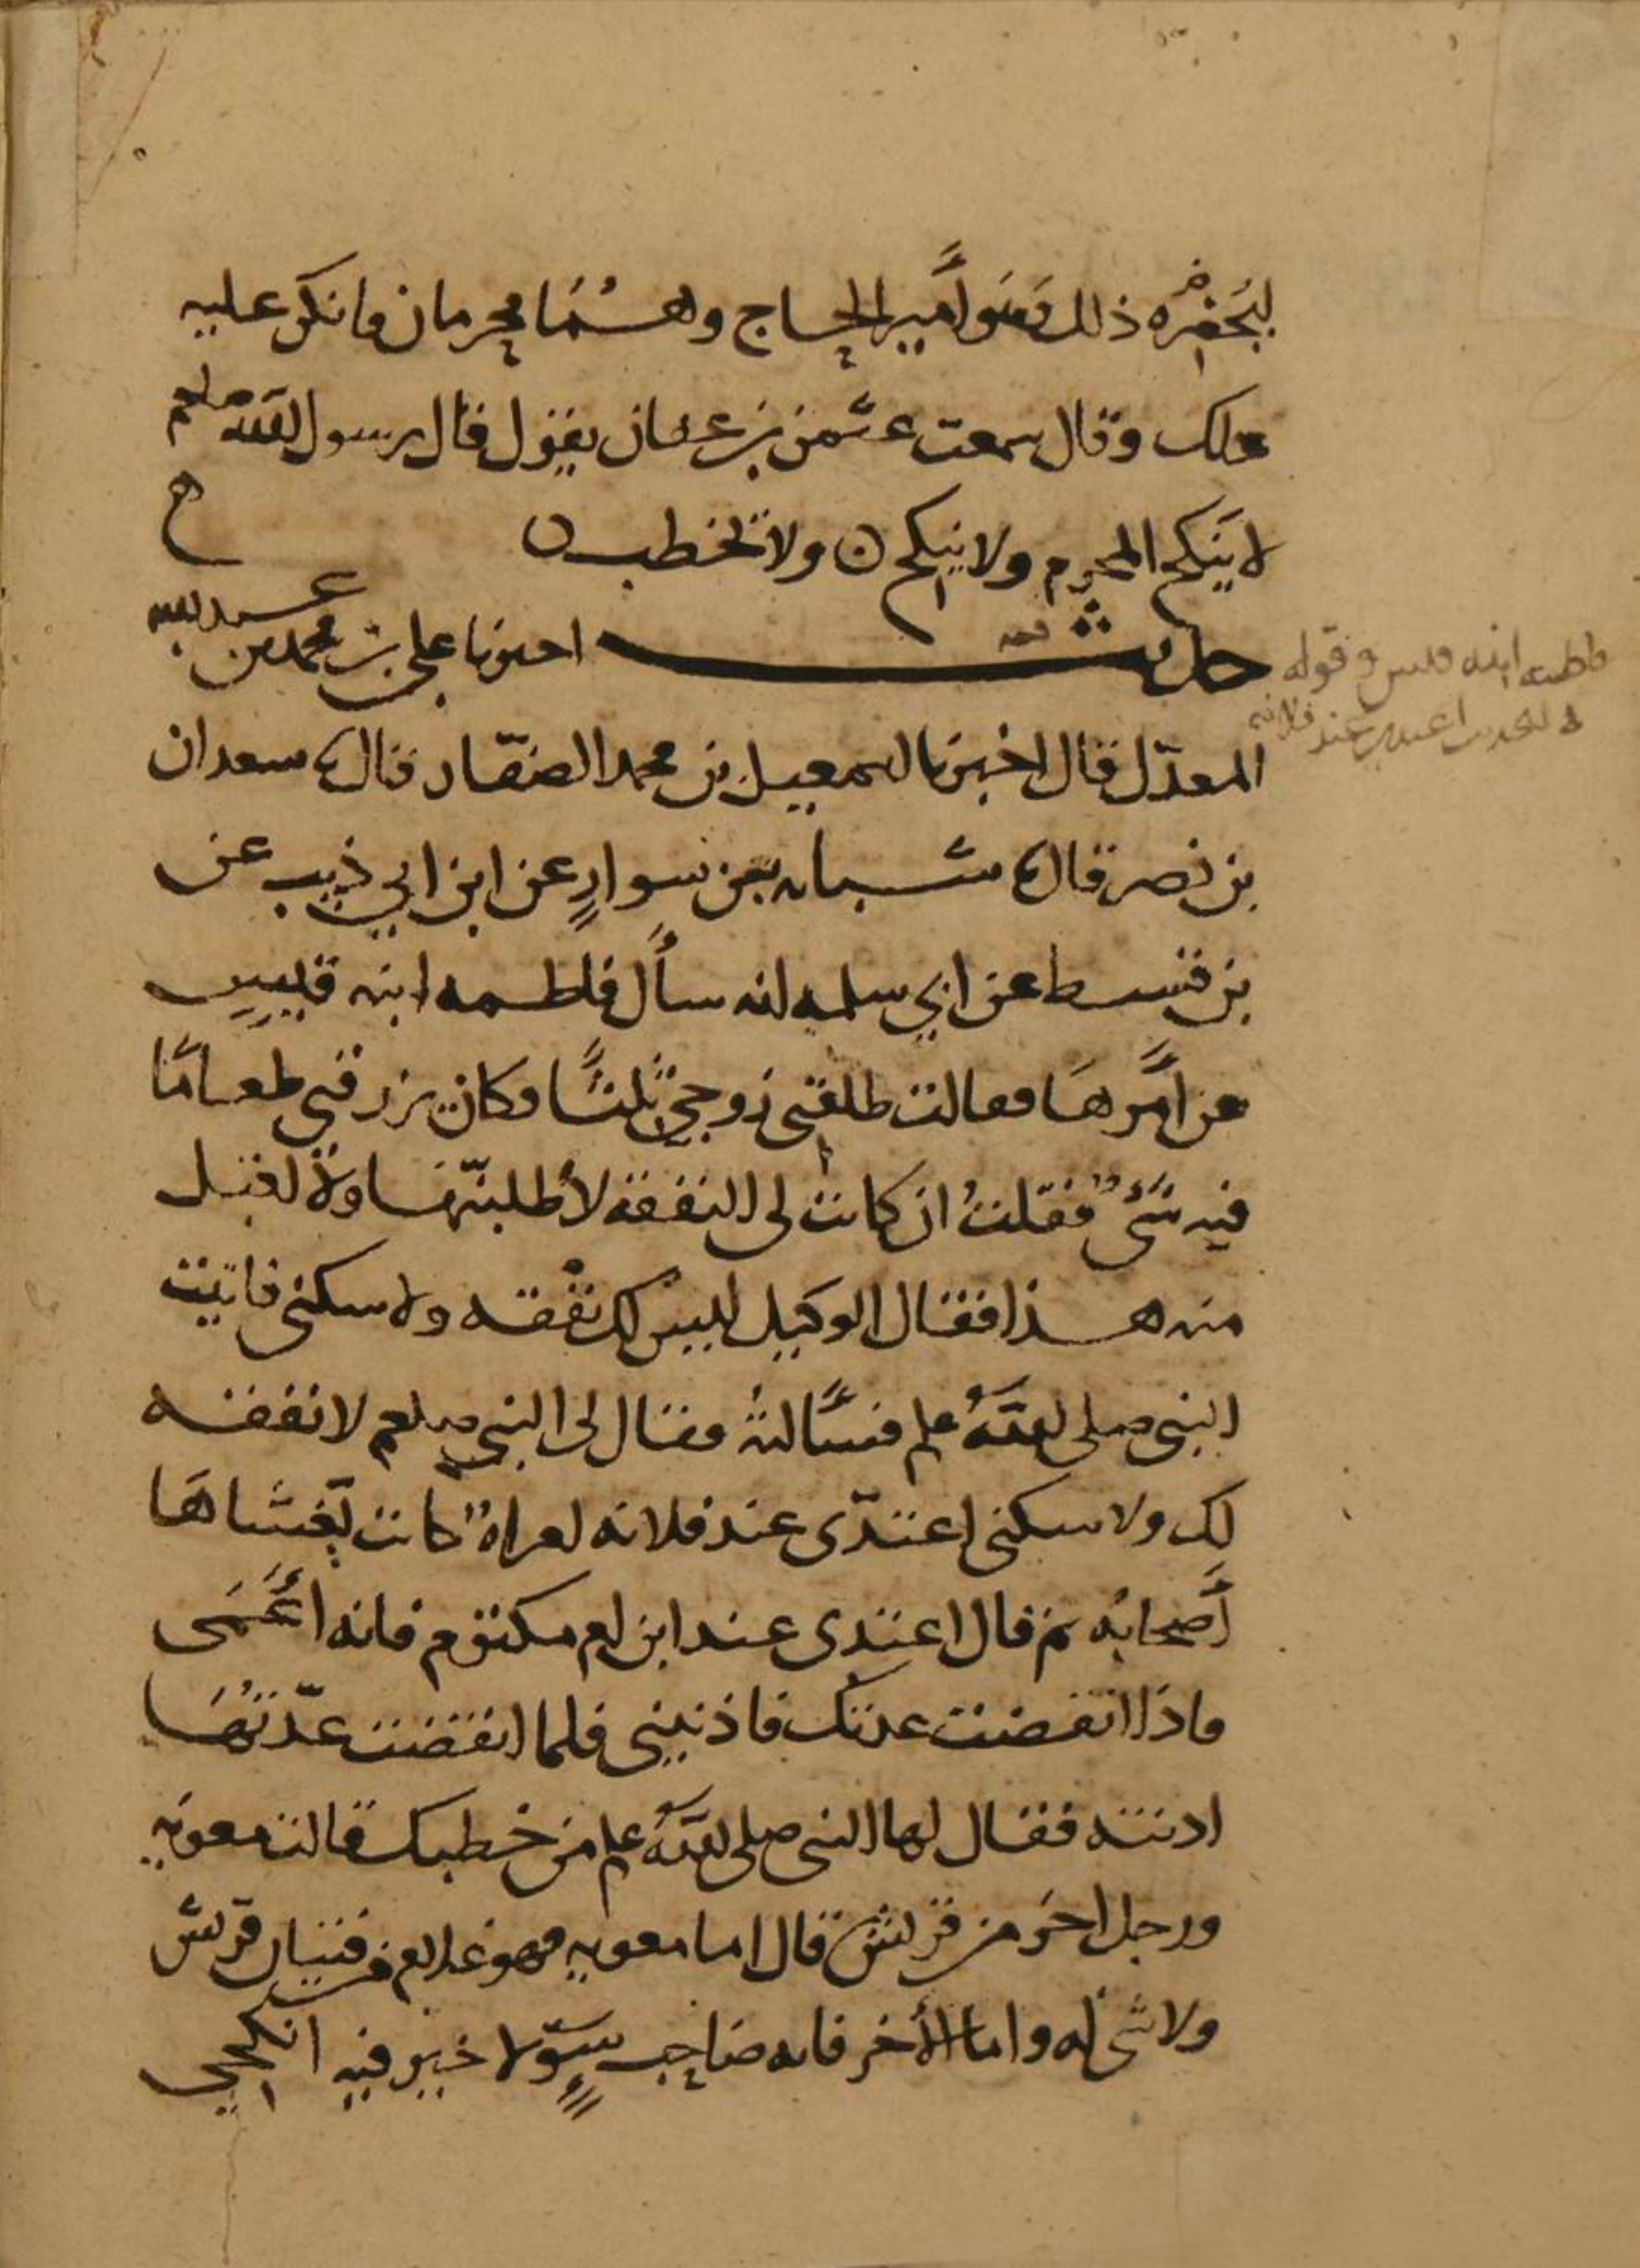 ليَحضُره ذلك وَهو أمير الحاج وهُمَا محرمان فانكر عليه
ذلك وقال سمعت عثمن بن عفان يقول قال رسول الله صلعم
لا يَنكح المحرم ولا يُنكح ولا يخطب
حديث احبرنا على بن محمد بن عبد الله
المعدّل قال اخبرنا اسمعيل بن محمد الصفّار قال ثنا سعدان
بن نصر قال ثنا شبابه بن سوارٍ عن ابن ابي ذيب عن
بن قسيط عن ابي سلمه انه سأل فاطمه ابنه قيس
عن أمرهَا فقالت طلقني زوجي ثلثًا وكان يرزقني طعامًا
فيه شىءٌ فقلتُ ان كانت لى النفقة لأطلبنّها ولا اقبل
منه هذا فقال الوكيل ليس لك نفقه ولا سكنى فاتيت
النبي صلى اللهُ علم فسألتهُ فقال لى النبي صلعم لا نفقه
لك ولا سكنى اعتدّى عند فلانه امراةٌ كانت يَغشاهَا
أصحابُه ثم قال اعتدى عند ابن ام مكتوم فانه اعْمَى
فاذا انقضت عدتك فاذنيني فلما انقضت عدّتُهَا
اذنته فقال لها النبى صلى اللهُ علم من خطبك قالت معويه
ورجل اخر من قريش قال اما معويه فهو غلام من فتيان قريش
ولا شى له واما الأخر فانه صاحب سوءٍ لا خير فيه انكحي
فاطمه ابنه قيس وقوله
فى الحديث اعتدى عند فلانه